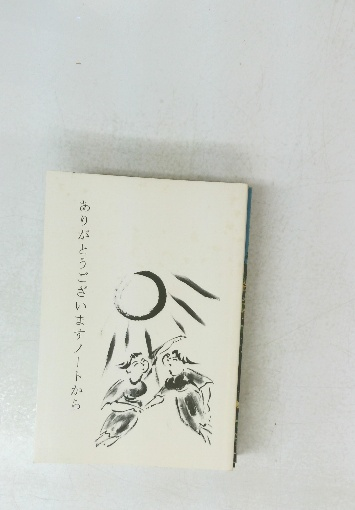 ありがとうございますノートから